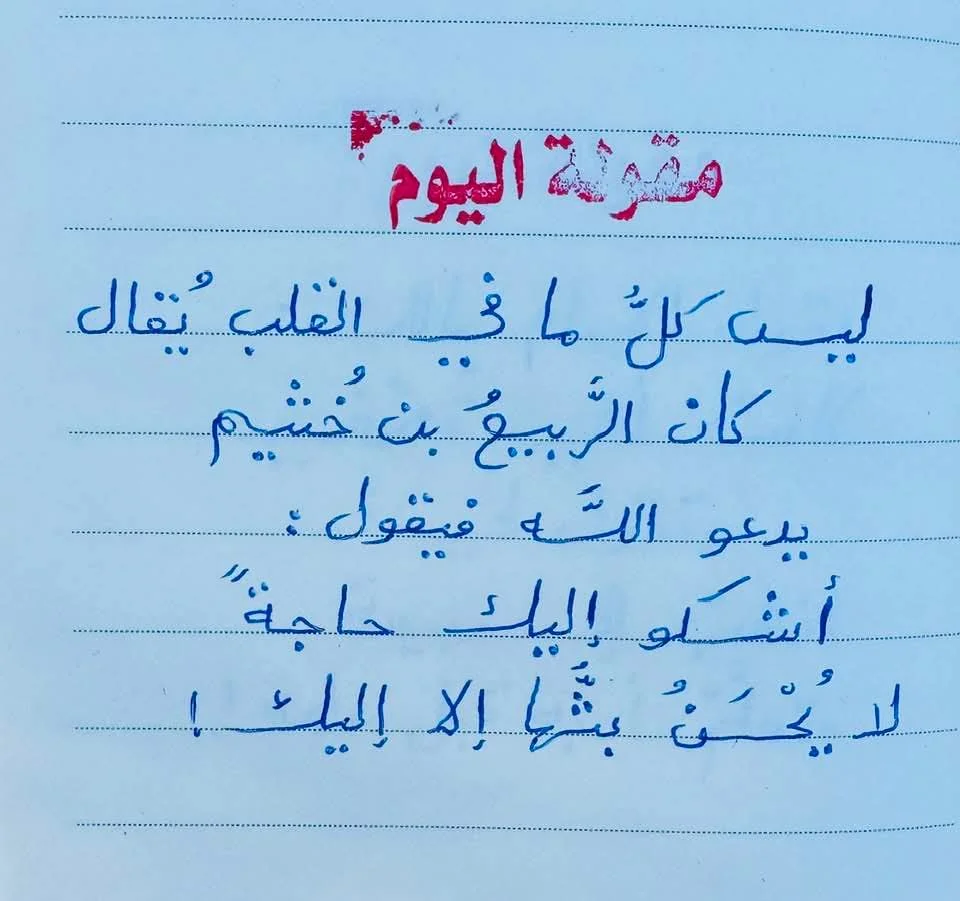 مقولة اليوم
ليس كلُّ ما في القلب يُقال
كان الرَّبيعُ بن خُثيم
يدعو اللَّه فيقول :
أشكو إليك حاجةً
لا يُحْسَنُ بثُّها إلا إليك !